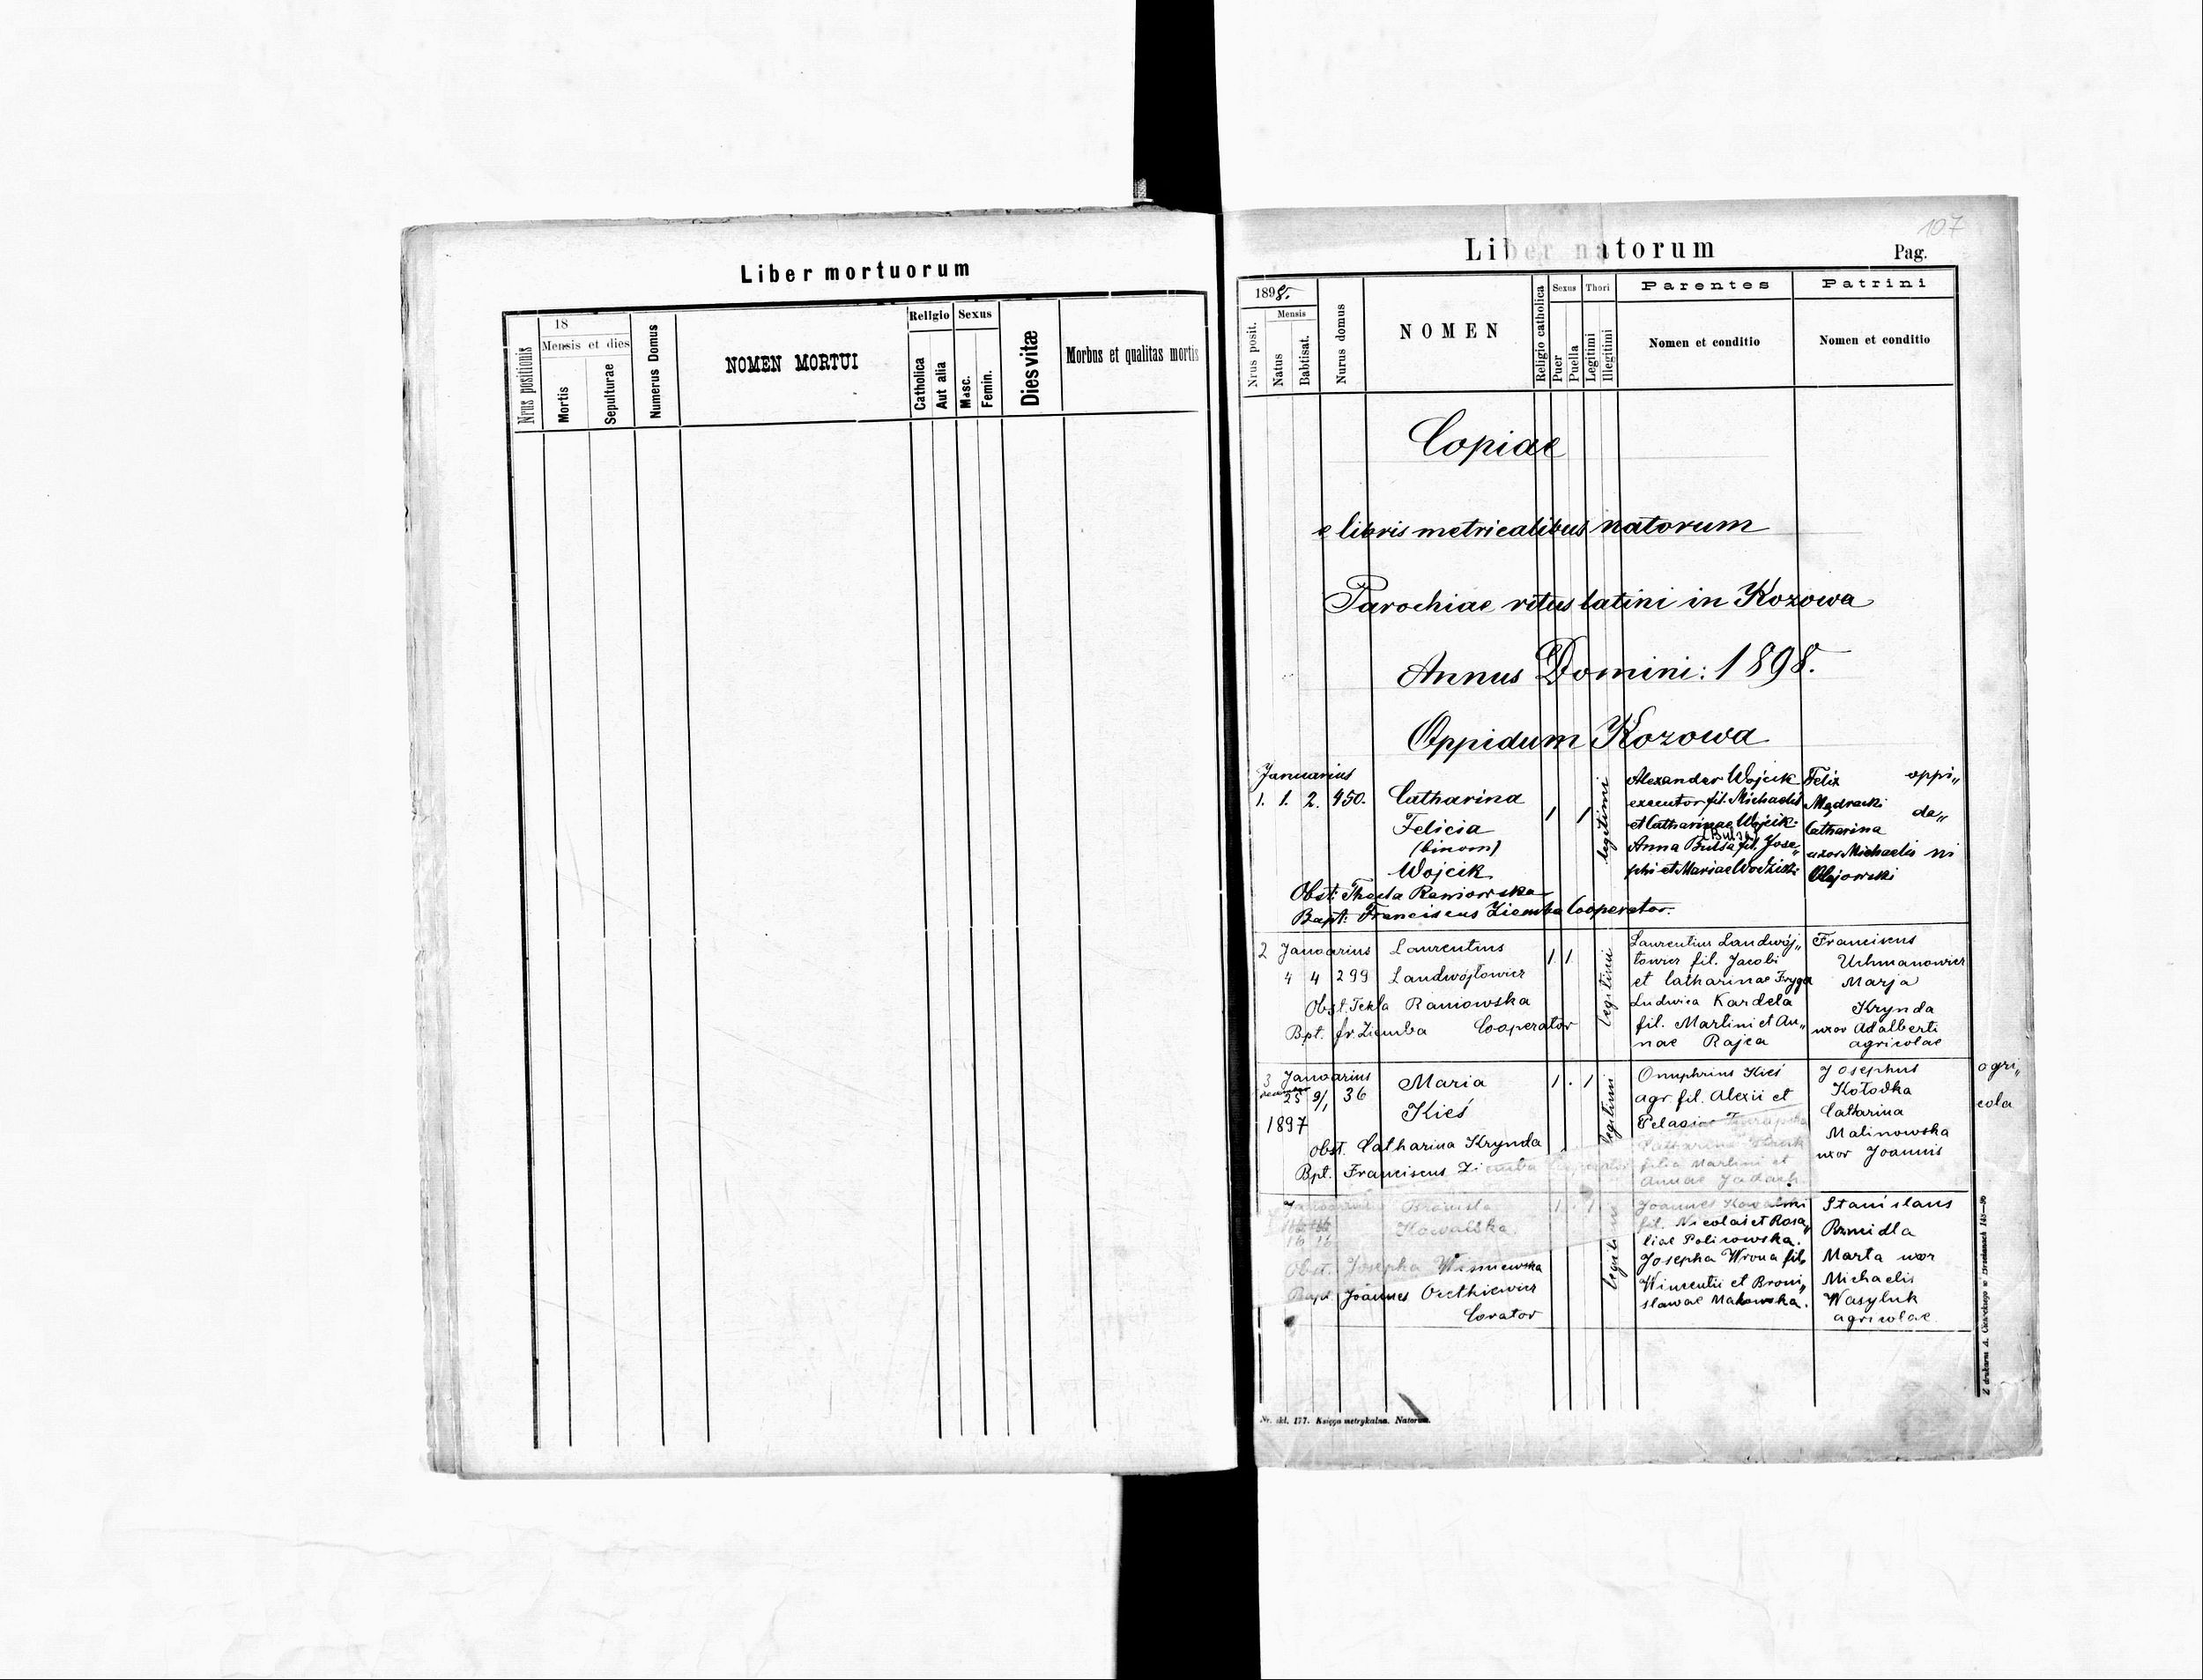 Liber mortuorum
Nrus positionis
18
Mensis et dies
Mortis
Sepulturae
Numerus Domus
NOMEN MORTUI
Religio
Catholica
Aut alia
Sexus
Masc.
Femin.
Dies vitæ
Morbus et qualitas mortis
107
Liber natorum
Pag.
1898.
Nrus posit.
Mensis
Natus
Babtisat.
Nurus domus
NOMEN
Religio catholica
Sexus
Puer
Puella
Thori
Legitimi
Illegitimi
Parentes
Nomen et conditio
Patrini
Nomen et conditio
Copiae
e libris metricalibus natorum
Parochiae ritus latini in Kozowa
Annus Domini: 1898.
Oppidum Kozowa
Januarius
1. 1. 2. 450.
Catharina
Felicia
(binom)
Wojcik
1 1
legitimi
Alexander Wojcik
executor fil. Michaelis
et Catharinae Wojcik.
(Bulsa)
Anna Bulsa fil. Jose„
phi et Mariae Wodzicki
Felix oppi„
Mądracki da„
Catharina
uxor Michaelis ni
Olejowski
Obst: Thecla Raniowska
Bapt: Franciscus Ziemba Cooperator.
2 Januarius
4 4 299
Laurentius
Landwójtowicz
1 1
legitimi
Laurentius Landwój„
towicz fil. Jacobi
et Catharinae Fryga
Ludwica Kardela
fil. Martini et An„
nae Rajca
Franciscus
Uchmanowicz
Marja
Krynda
uxor Adalberti
agricolae
Obst. Tekla Raniowska
Bpt. fr. Ziemba Cooperator
3 Januarius
25 9/1 36
1897
Maria
Kieś
1 . 1
legitimi
Onuphrius Kieś
agr. fil. Alexii et
Pelagiae
Catharina
filia Martini et
Annae Jadach
Josephus agri„
Kołodka
Catharina cola
Malinowska
uxor Joannis
Obst. Catharina Krynda
Bpt. Franciscus Ziemba Cooperator
Januarius
16 16
Kowalska.
1 . 1
Joannes Kowalski
fil. Nicolai et Rosa„
liae Policowska.
Josepha Wrona fil.
Wincentii et Broni„
slawae Makowska.
Stanislaus
Bzmidla
Marta uxor
Michaelis
Wasyluk
agricolae
Obst. Josepha Wisniewska
Bapt. Joannes
Corator
Nr. skl. 177. Księga metrykalna. Natorum.